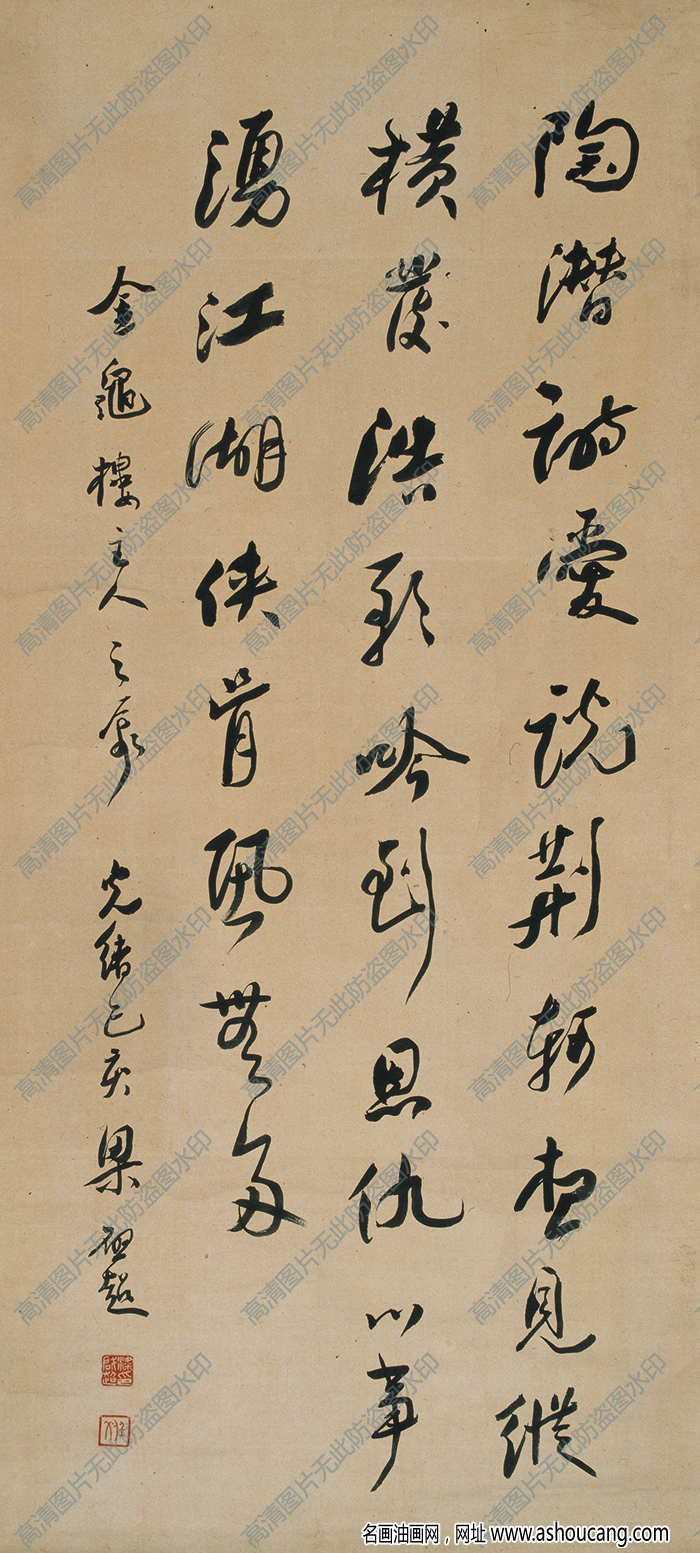 陶潛詩愛說荊軻想見縱
橫發浩歌吟到恩仇心事
湧江湖俠骨恐無多
金龜樓主人之屬 光緒己亥 梁啟超
高清图片无此防盗图水印
名画油画网，网址 www.ashoucang.com